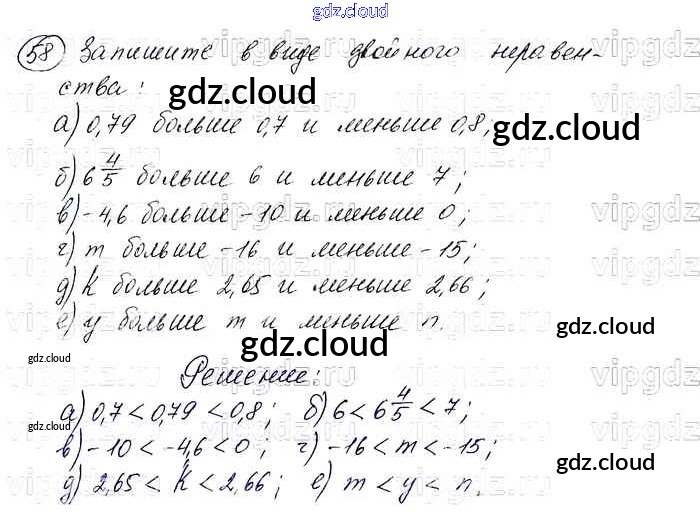 gdz.cloud
58 Запишите в виде двойного неравен-
ства:
gdz.cloud
а) 0,79 больше 0,7 и меньше 0,8;
gdz.cloud
б) 6 4/5 больше 6 и меньше 7;
в) -4,6 больше -10 и меньше 0;
г) m больше -16 и меньше -15;
д) K больше 2,65 и меньше 2,66;
е) y больше m и меньше n.
gdz.cloud
gdz.cloud
gdz.cloud
Решение:
а) 0,7 < 0,79 < 0,8; б) 6 < 6 4/5 < 7;
gdz.cloud
в) -10 < -4,6 < 0; г) -16 < m < -15;
gdz.cloud
д) 2,65 < K < 2,66; е) m < y < n.